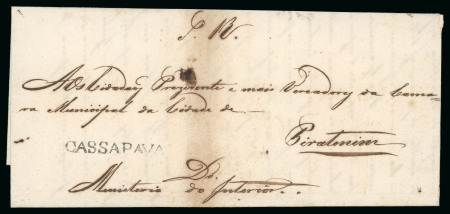 S. R.
Aos Cidadãos Prezidente e mais Vereadores da Cama-
ra Municipal da Cidade de
Piratinim
CASSAPAVA
Do
Ministerio do Interior..